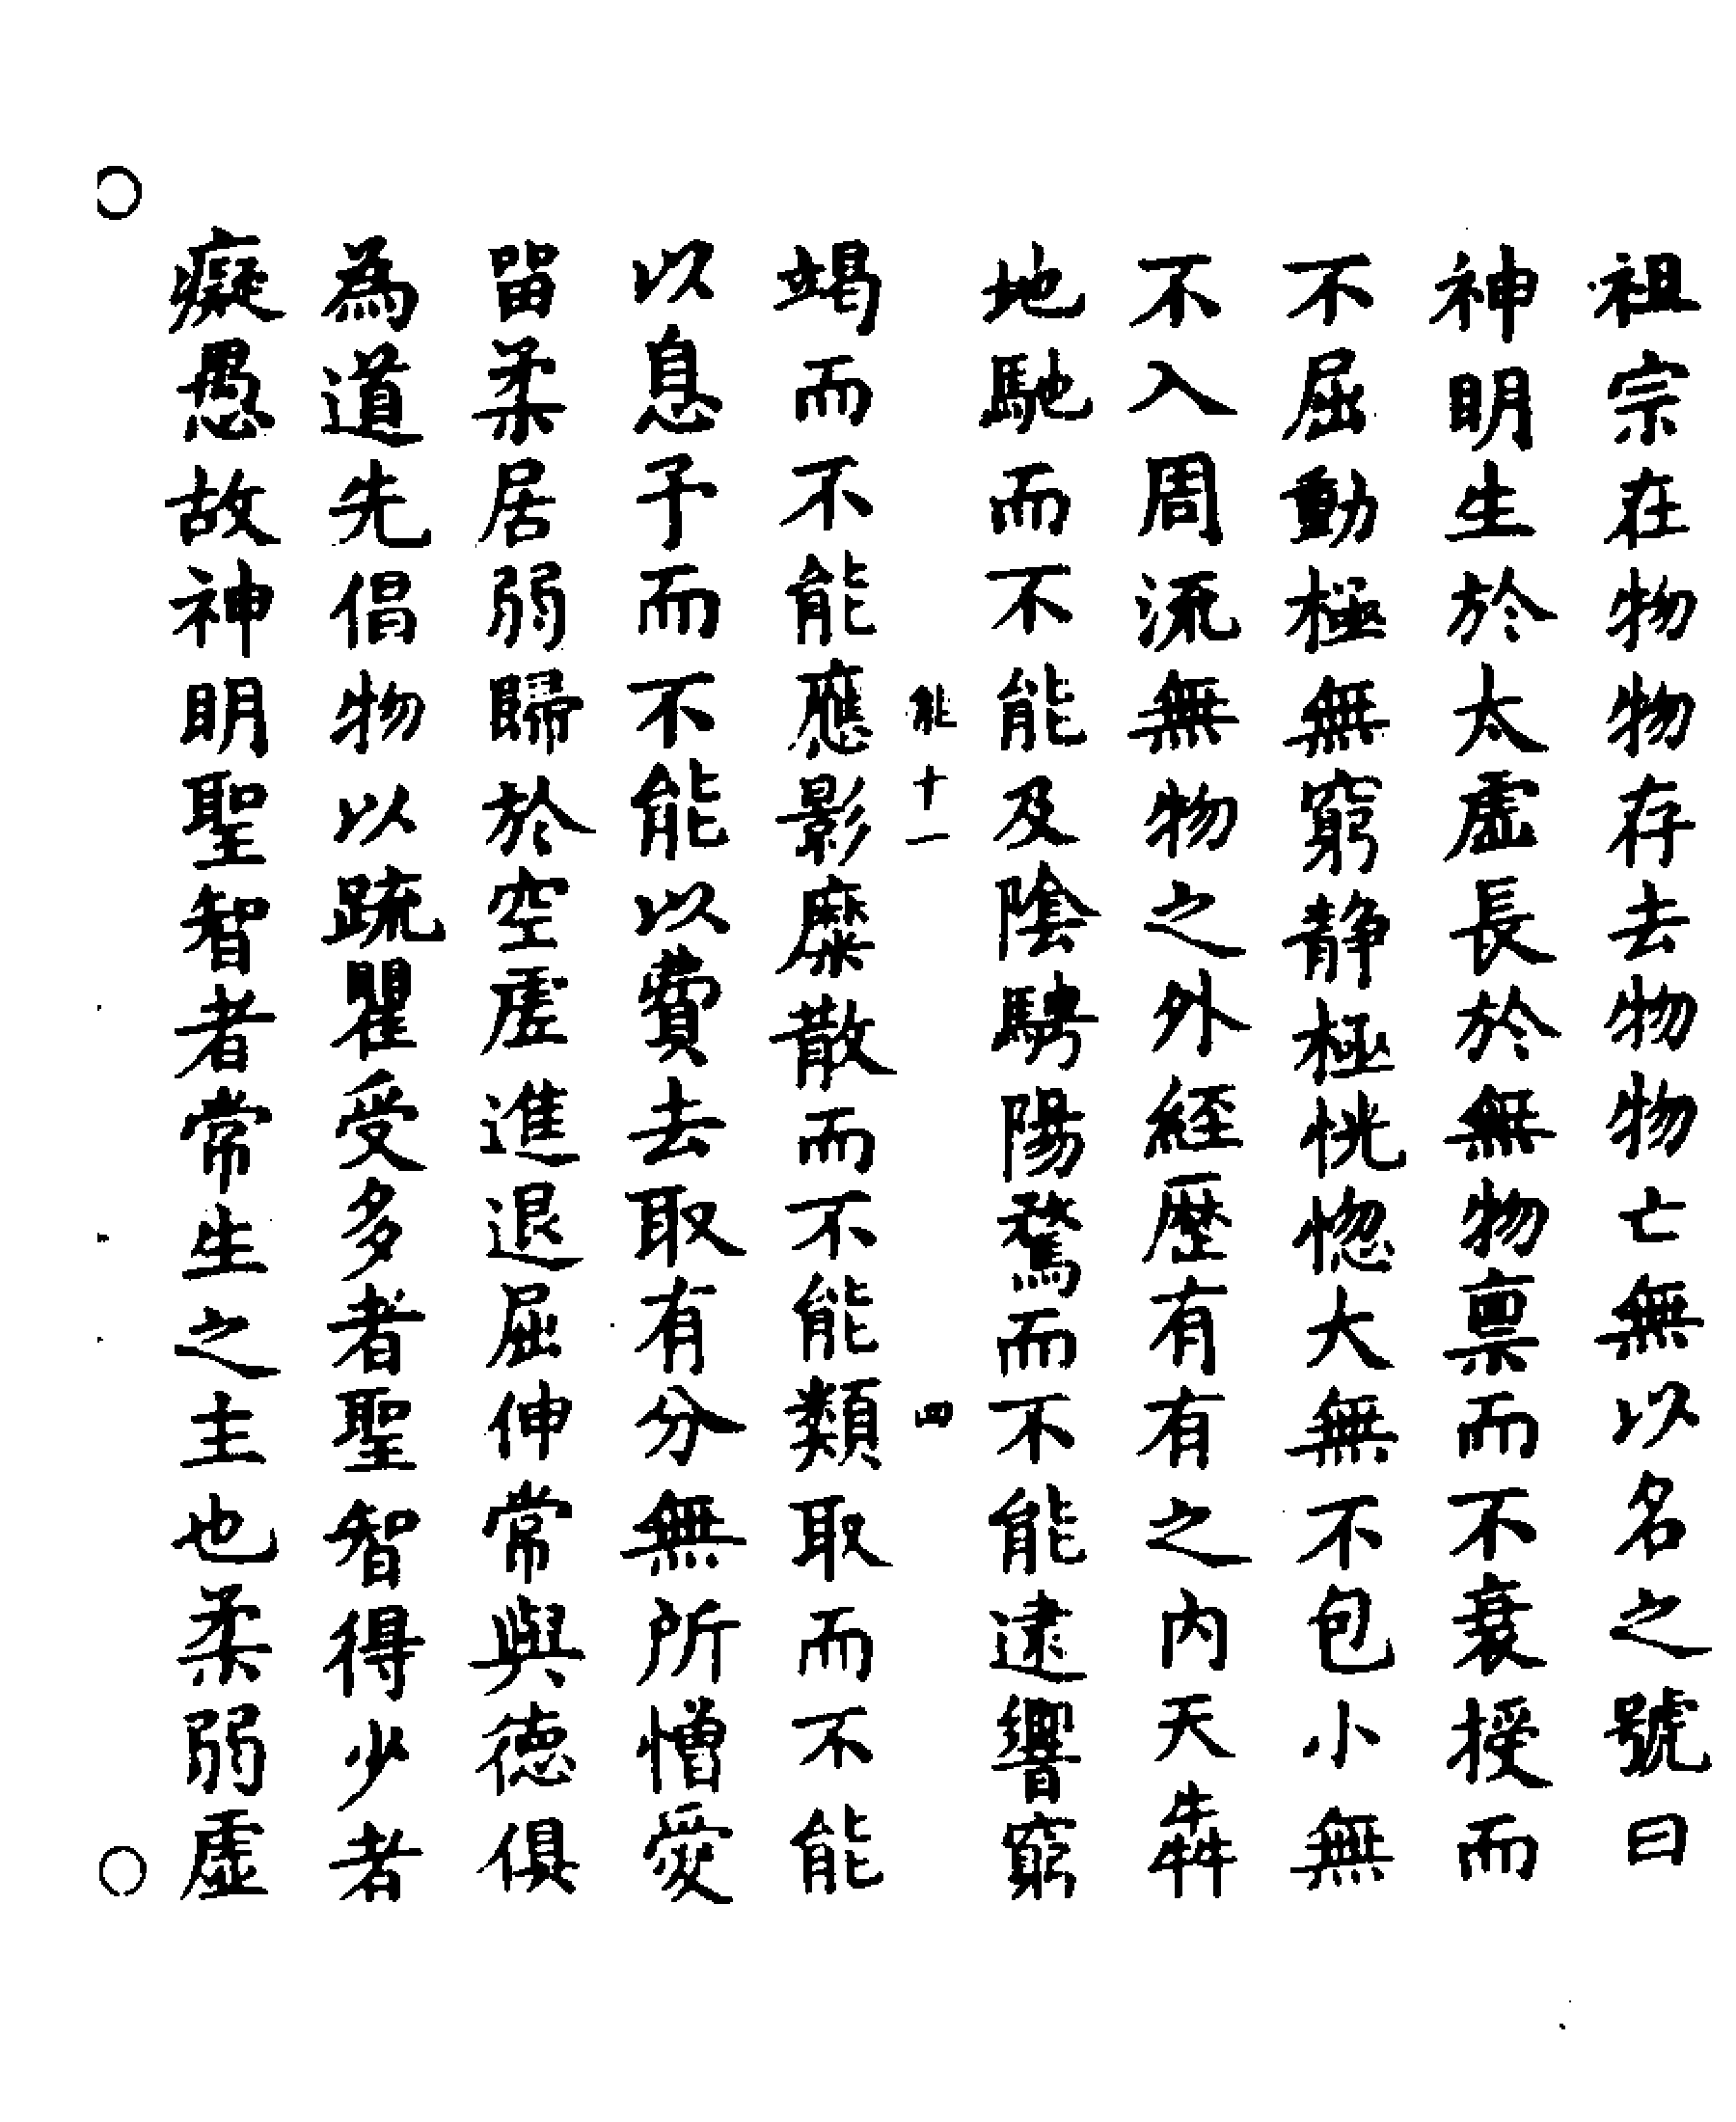 祖宗在物物存去物物亡無以名之號曰
神明生於太虛長於無物禀而不衰授而
不屈動極無窮静極恍惚大無不包小無
不入周流無物之外經歷有有之内天犇
地馳而不能及陰騁陽騖而不能逮響窮
能十一　四
竭而不能應影糜散而不能類取而不能
以息予而不能以費去取有分無所憎愛
留柔居弱歸於空虛進退屈伸常與德俱
為道先倡物以疏瞿受多者聖智得少者
癡愚故神明聖智者常生之主也柔弱虛